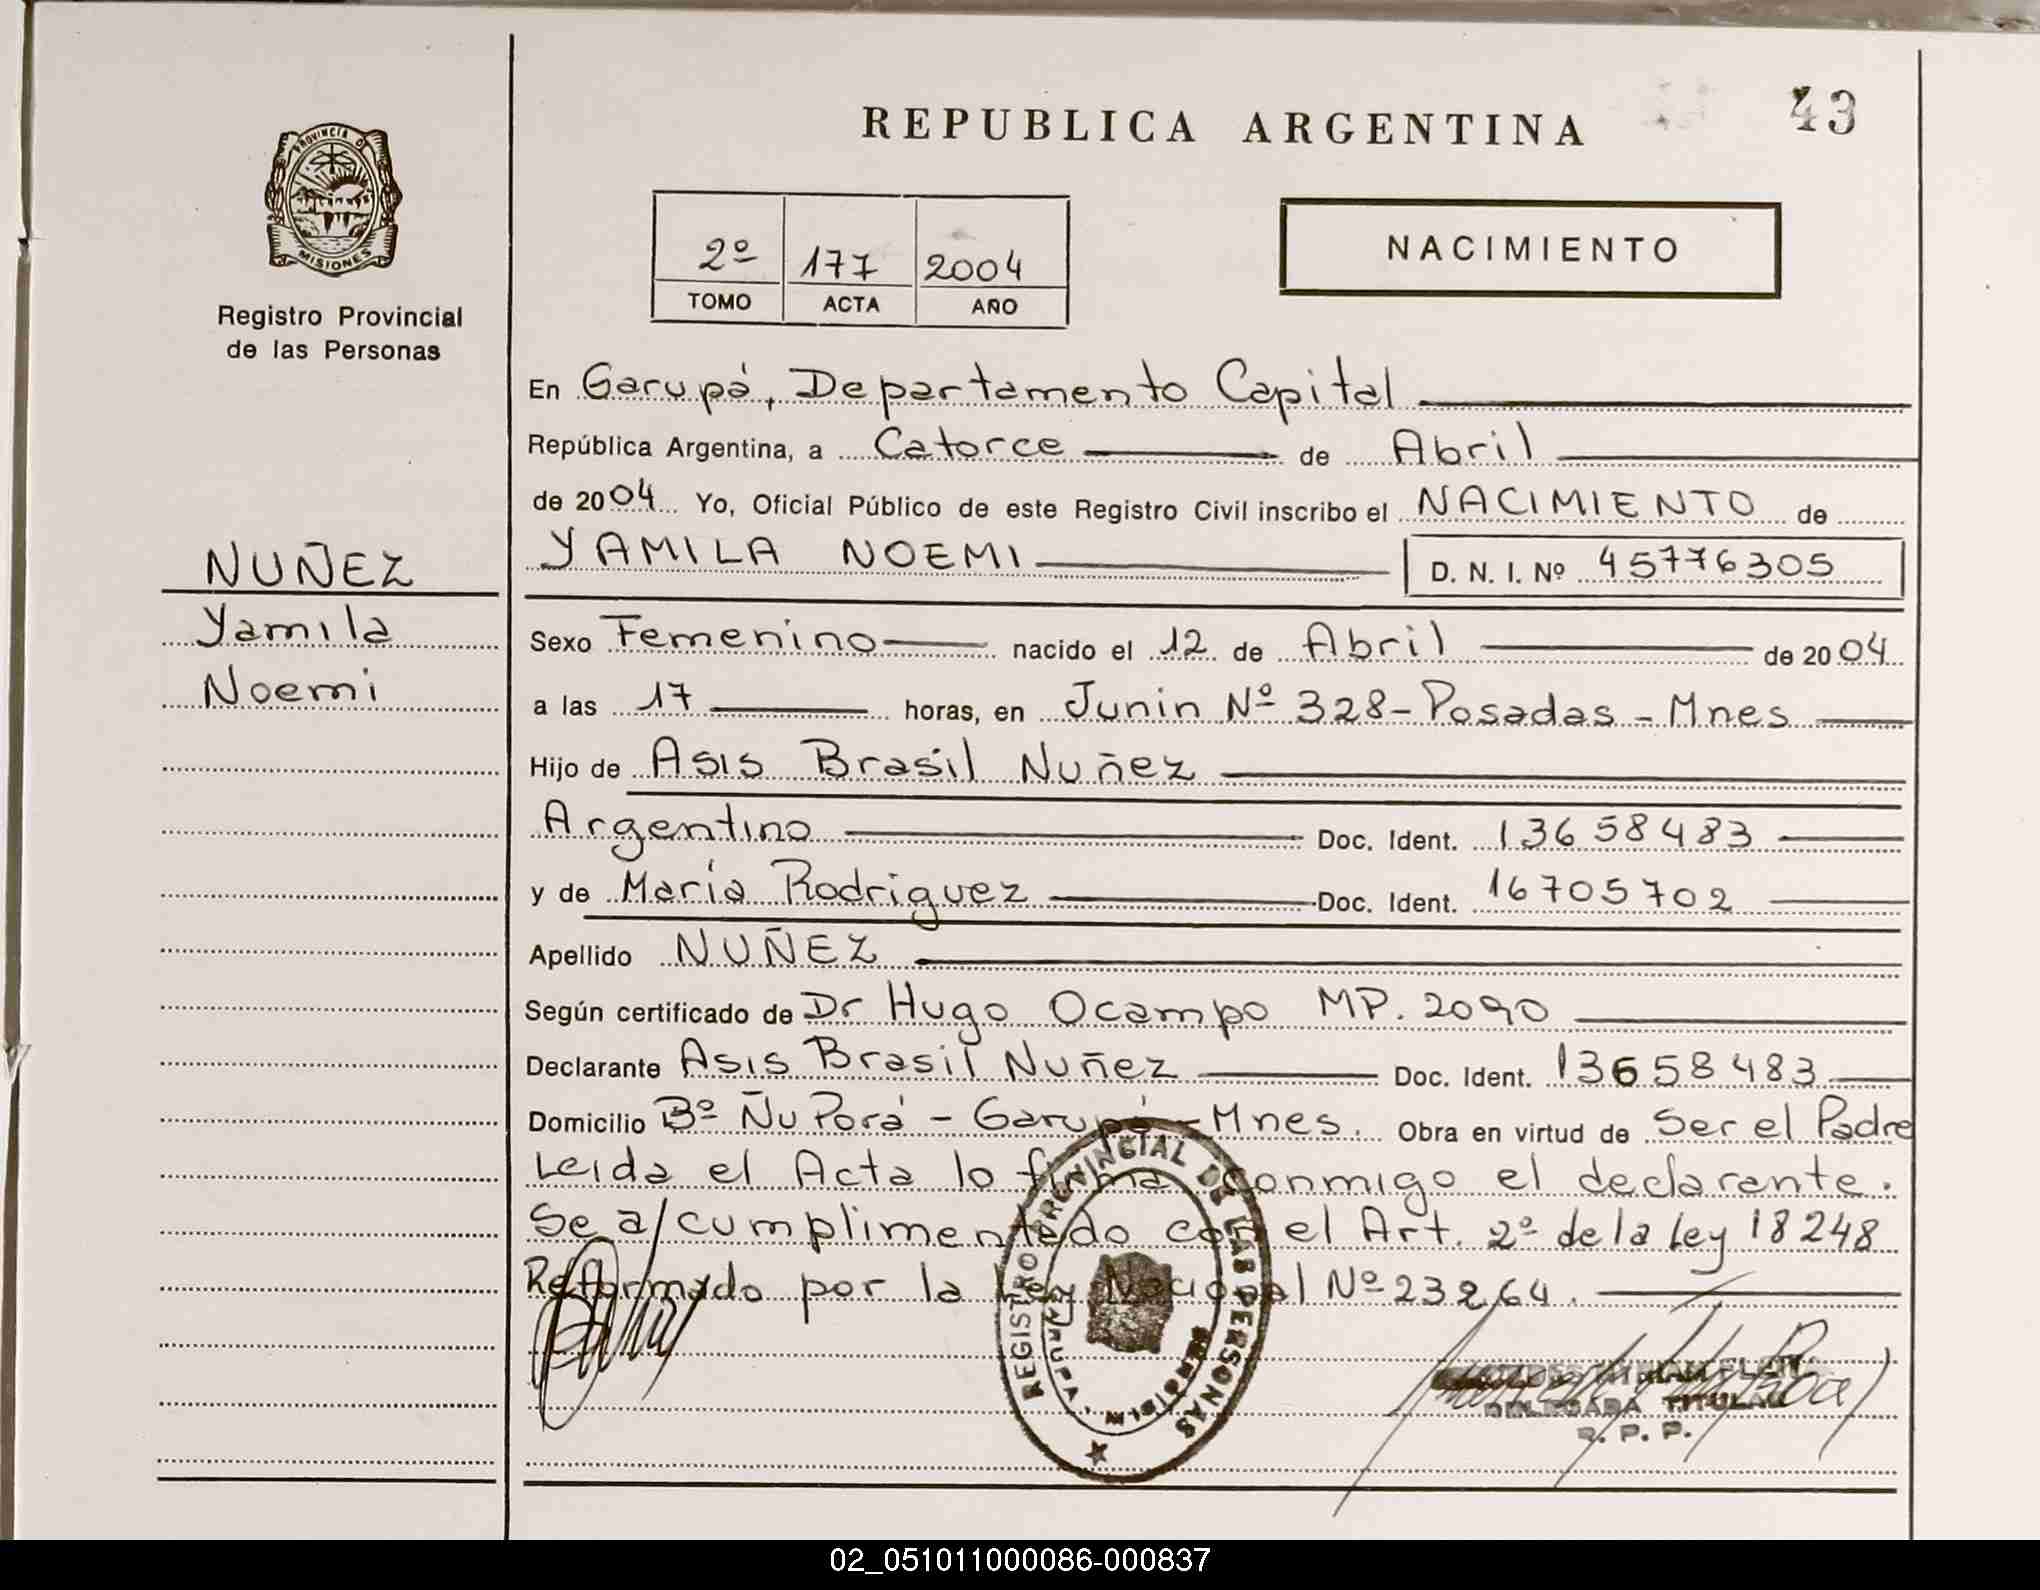 REPUBLICA ARGENTINA
43
PROVINCIA D
MISIONES
Registro Provincial
de las Personas
2º 177 2004
TOMO ACTA AÑO
NACIMIENTO
En Garupá, Departamento Capital
República Argentina, a Catorce de Abril
de 2004 Yo, Oficial Público de este Registro Civil inscribo el NACIMIENTO de
YAMILA NOEMI D. N. I. Nº 45776305
NUÑEZ
Yamila
Noemi
Sexo Femenino nacido el 12 de Abril de 2004
a las 17 horas, en Junin Nº 328-Posadas-Mnes
Hijo de Asis Brasil Nuñez
Argentino Doc. Ident. 13658483
y de María Rodriguez Doc. Ident. 16705702
Apellido NUÑEZ
Según certificado de Dr Hugo Ocampo MP. 2090
Declarante Asis Brasil Nuñez Doc. Ident. 13658483
Domicilio Bº Ñu Porá - Garupá - Mnes. Obra en virtud de Ser el Padre
Leida el Acta lo firma conmigo el declarante.
Se a/cumplimentado con el Art. 2º de la Ley 18248
Reformado por la Ley Nacional Nº 23264.
REGISTRO PROVINCIAL DE LAS PERSONAS
GARUPA
DELEGADA TITULAR
R. P. P.
02_051011000086-000837